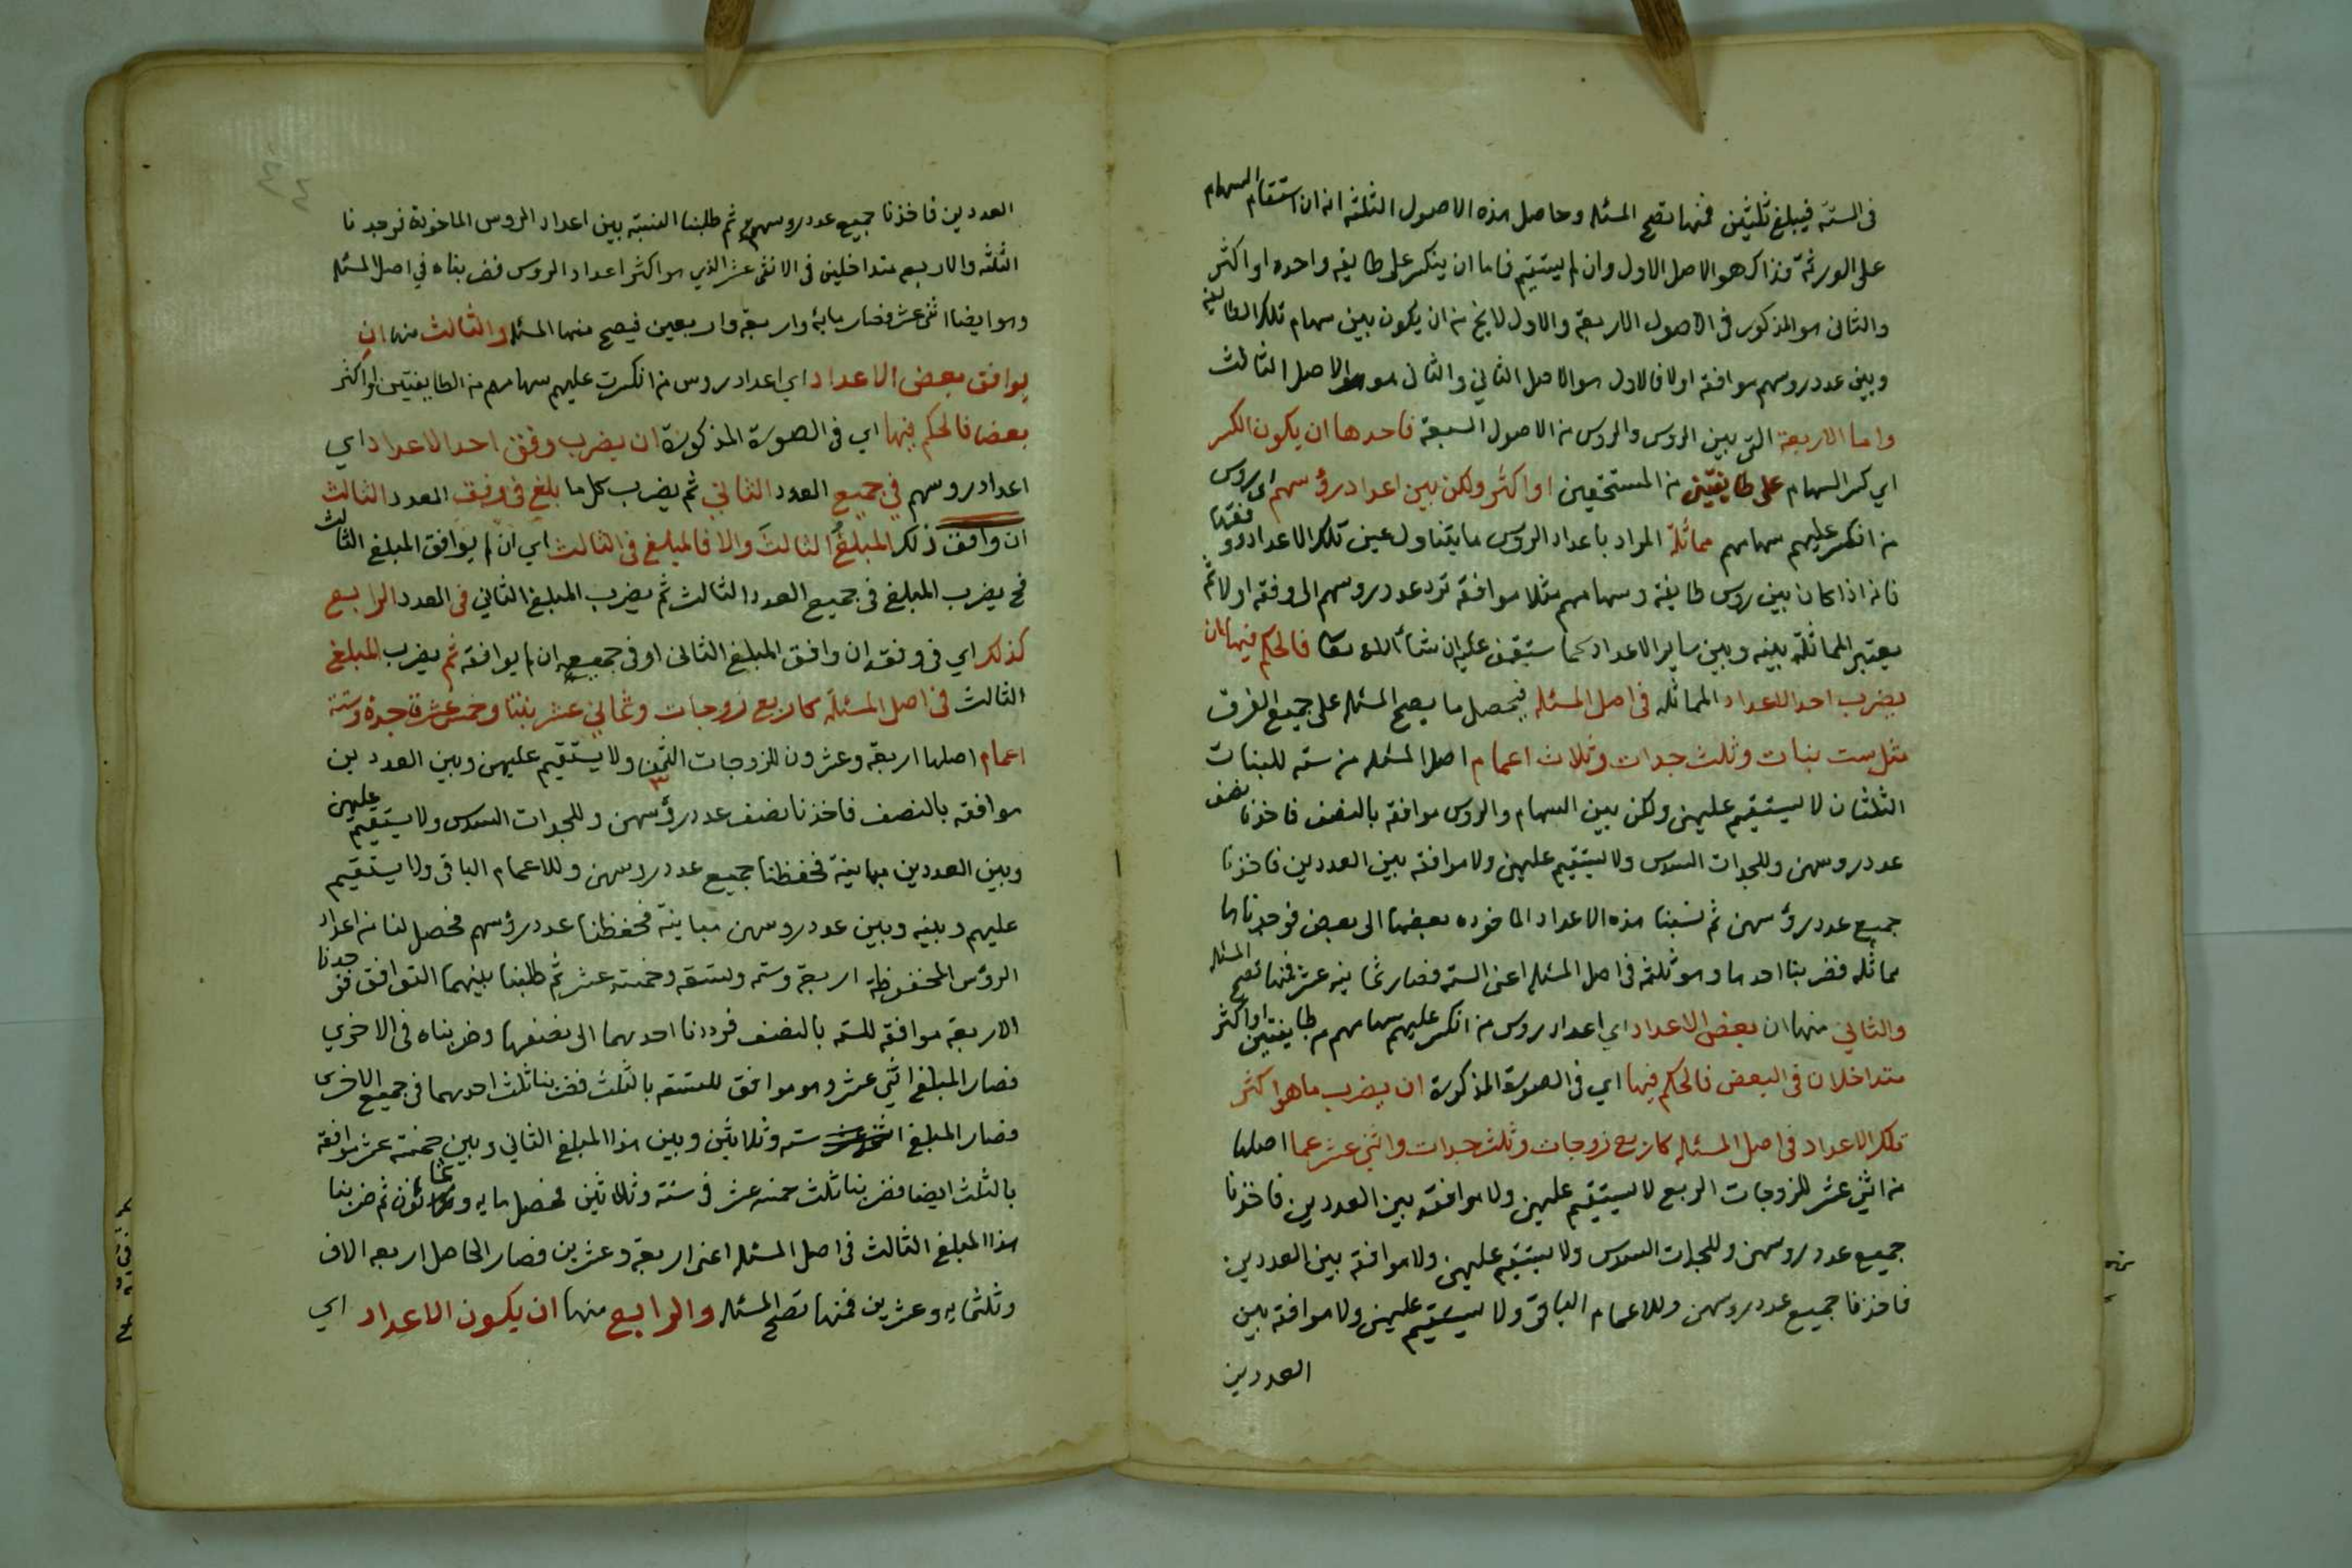 فى الستة فيبلغ ثلثين فمنها تصح المسئله وحاصل هذه الاصول الثلثه انه ان استقام السهام
على الورثة فذاك هو الاصل الاول وان لم يستقيم فاما ان ينكسر على طايفه واحده او اكثر
والثانى هو المذكور فى الاصول الاربعة والاول لا يخ من ان يكون بين سهام تلك الطايفه
وبين عدد روسهم موافقه اولا فالاول هو الاصل الثاني والثانى هو الاصل الثالث
واما الاربعة التى بين الروس والروس من الاصول السبعة فاحدها ان يكون الكسر
اي كسر السهام على طايفتين من المستحقين او اكثر ولكن بين اعداد رؤسهم اى روس
من انكسر عليهم سهامهم مماثلة المراد باعداد الروس ما يتناول عين تلك الاعداد ووفقها
فانه اذا كان بين روس طايفه وسهامهم مثلا موافقة ترد عدد روسهم الى وفقه اولا ثم
يعتبر المماثلة بينه وبين ساير الاعداد كما ستقف عليه ان شاء الله تعا فالحكم فيها ان
يضرب احد الاعداد المماثله فى اصل المسئله فيحصل ما يصح المسئله على جميع الفرق
مثل ست بنات وثلث جدات وثلاث اعمام اصل المسئله من سته للبنات
الثلثان لا يستقيم عليهن ولكن بين السهام والروس موافقة بالنصف فاخذنا نصف
عدد روسهن وللجدات السدس ولا يستقيم عليهن ولا موافقه بين العددين فاخذنا
جميع عدد رؤسهن ثم نسبنا هذه الاعداد الماخوذه بعضها الى بعض فوجدناها
مماثله فضربنا احدها وهو ثلثه فى اصل المسئله اعنى السته فصار ثمانيه عشر فمنها تصح المسئله
والثاني منها ان بعض الاعداد اي اعداد روس من انكسر عليهم سهامهم من طايفتين او اكثر
متداخلان فى البعض فالحكم فيها اي فى الصورة المذكورة ان يضرب ما هو اكثر
تلك الاعداد فى اصل المسئله كاربع زوجات وثلث جدات واثنى عشر عما اصلها
من اثني عشر للزوجات الربع لا يستقيم عليهن ولا موافقه بين العددين فاخذنا
جميع عدد روسهن وللجدات السدس ولا يستقيم عليهن ولا موافقة بين العددين
فاخذنا جميع عدد روسهن وللاعمام الباقى ولا يستقيم عليهن ولا موافقة بين
العددين
العددين فاخذنا جميع عدد روسهم ثم طلبنا النسبة بين اعداد الروس الماخوذة فوجدنا
الثلثه والاربعه متداخلين فى الاثنى عشر الذي هو اكثر اعداد الروس فضربناه في اصل المسئله
وهو ايضا اثنى عشر فصار مايه واربعة واربعين فيصح منها المسئله والثالث منها ان
يوافق بعض الاعداد اي اعداد روس من انكسرت عليهم سهامهم من الطايفتين او اكثر
بعضا فالحكم فيها اي فى الصورة المذكورة ان يضرب وفق احد الاعداد اي
اعداد روسهم في جميع العدد الثاني ثم يضرب كل ما بلغ فى وفق العدد الثالث
ان وافق ذلك المبلغ الثالث والا فالمبلغ فى الثالث اي ان لم يوافق المبلغ الثالث
فح يضرب المبلغ فى جميع العدد الثالث ثم يضرب المبلغ الثاني فى العدد الرابع
كذلك اي فى وفقه ان وافق المبلغ الثانى او فى جميعه ان لم يوافقه ثم يضرب المبلغ
الثالث فى اصل المسئلة كاربع زوجات وثماني عشر بنتا وخمس عشرة جدة وستة
اعمام اصلها اربعة وعشرون للزوجات الثمن ٣ ولا يستقيم عليهن وبين العددين
موافقه بالنصف فاخذنا نصف عدد رؤسهن وللجدات السدس ولا يستقيم عليهن
وبين العددين مباينة فحفظنا جميع عدد روسهن وللاعمام الباقى ولا يستقيم
عليهم وبينه وبين عدد روسهن مباينة فحفظنا عدد رؤسهم فحصل لنا من اعداد
الرؤس المحفوظة اربعة وسته وتسعة وخمسة عشر ثم طلبنا بينهما التوافق فوجدنا
الاربعة موافقة للسته بالنصف فرددنا احديهما الى نصفها وضربناه فى الاخري
فصار المبلغ اثنى عشر وهو موافق للتسعه بالثلث فضربنا ثلث احديهما فى جميع الاخرى
فصار المبلغ سته وثلاثين وبين هذا المبلغ الثاني وبين خمسة عشر موافقة
بالثلث ايضا فضربنا ثلث خمسه عشر فى ستة وثلاثين فحصل مايه وثمانون ثم ضربنا
هذا المبلغ الثالث فى اصل المسئله اعنى اربعة وعشرين فصار الحاصل اربعه الاف
وثلثمايه وعشرين فمنها تصح المسئله والرابع منها ان يكون الاعداد اي